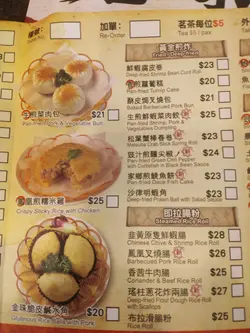 加單:
Re-Order
茗茶每位$5
Tea $5 / pax
黃金煎炸
Fried / Deep-Fried
鮮蝦腐皮卷
Deep-fried Shrimp Bean Curd Roll
$23
煎蘿蔔糕
Pan-fried Turnip Cake
$20
酥皮焗叉燒包
Baked Barbecued Pork Bun
$21
生煎鮮蝦菜肉餃
Pan-fried Shrimp, Pork &
Vegetables Dumpling
$25
松葉蟹棒春卷
$24
豉汁煎釀尖椒
Pan-fried Green Chili Pepper
with Cuttlefish in Black Bean Sauce
$21
家鄉煎鯪魚餅
Pan-fried Dace Fish Cake
$23
沙律明蝦角
Deep-fried Prawn Ball with Salad Sauce
$23
煎菜肉包
Pan-fried Pork & Vegetable Bun
$21
煎糯米雞
Crispy Sticky Rice with Chicken
$23
金珠脆皮鹹水角
$20
即拉腸粉
Steamed Rice Roll
韭黃原隻鮮蝦腸
Chinese Chive & Shrimp Rice Roll
$28
鳳凰叉燒腸
Barbecued Pork Rice Roll
$24
香茜牛肉腸
Coriander & Beef Rice Roll
$24
瑤柱蔥花炸兩腸
Deep-fried Flour Dough Rice Roll
with Scallops
$27
布拉滑腸粉
Plain Rice Roll
$25